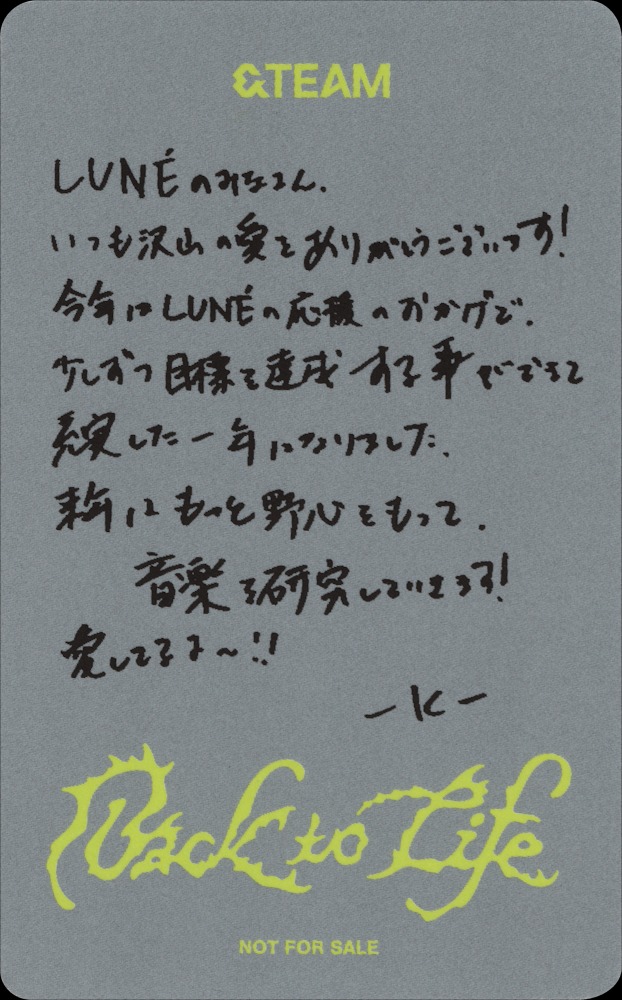 &TEAM
LUNÉのみなさん.
いつも沢山の愛をありがとうございます!
今年はLUNÉの応援のおかげで.
少しずつ目標を達成する事ができて
充実した一年になりました.
来年はもっと野心をもって.
音楽を研究していきます!
愛してるよ〜!!
-K-
Back to Life
NOT FOR SALE